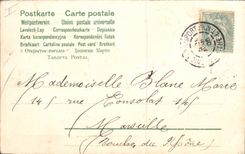 Postkarte Carte postale
Weltpostverein Union postale universelle
Levelezö-Lap Correspondenzkarte Dopisnice
Karta korespondencyjna Korespondenčni listek
Briefkaart Cartolina postale Post card Brefkort
Tarjeta Postal
Mademoiselle Blanc Marie
145 rue Consolat 145
Marseille
Bouches du Rhône